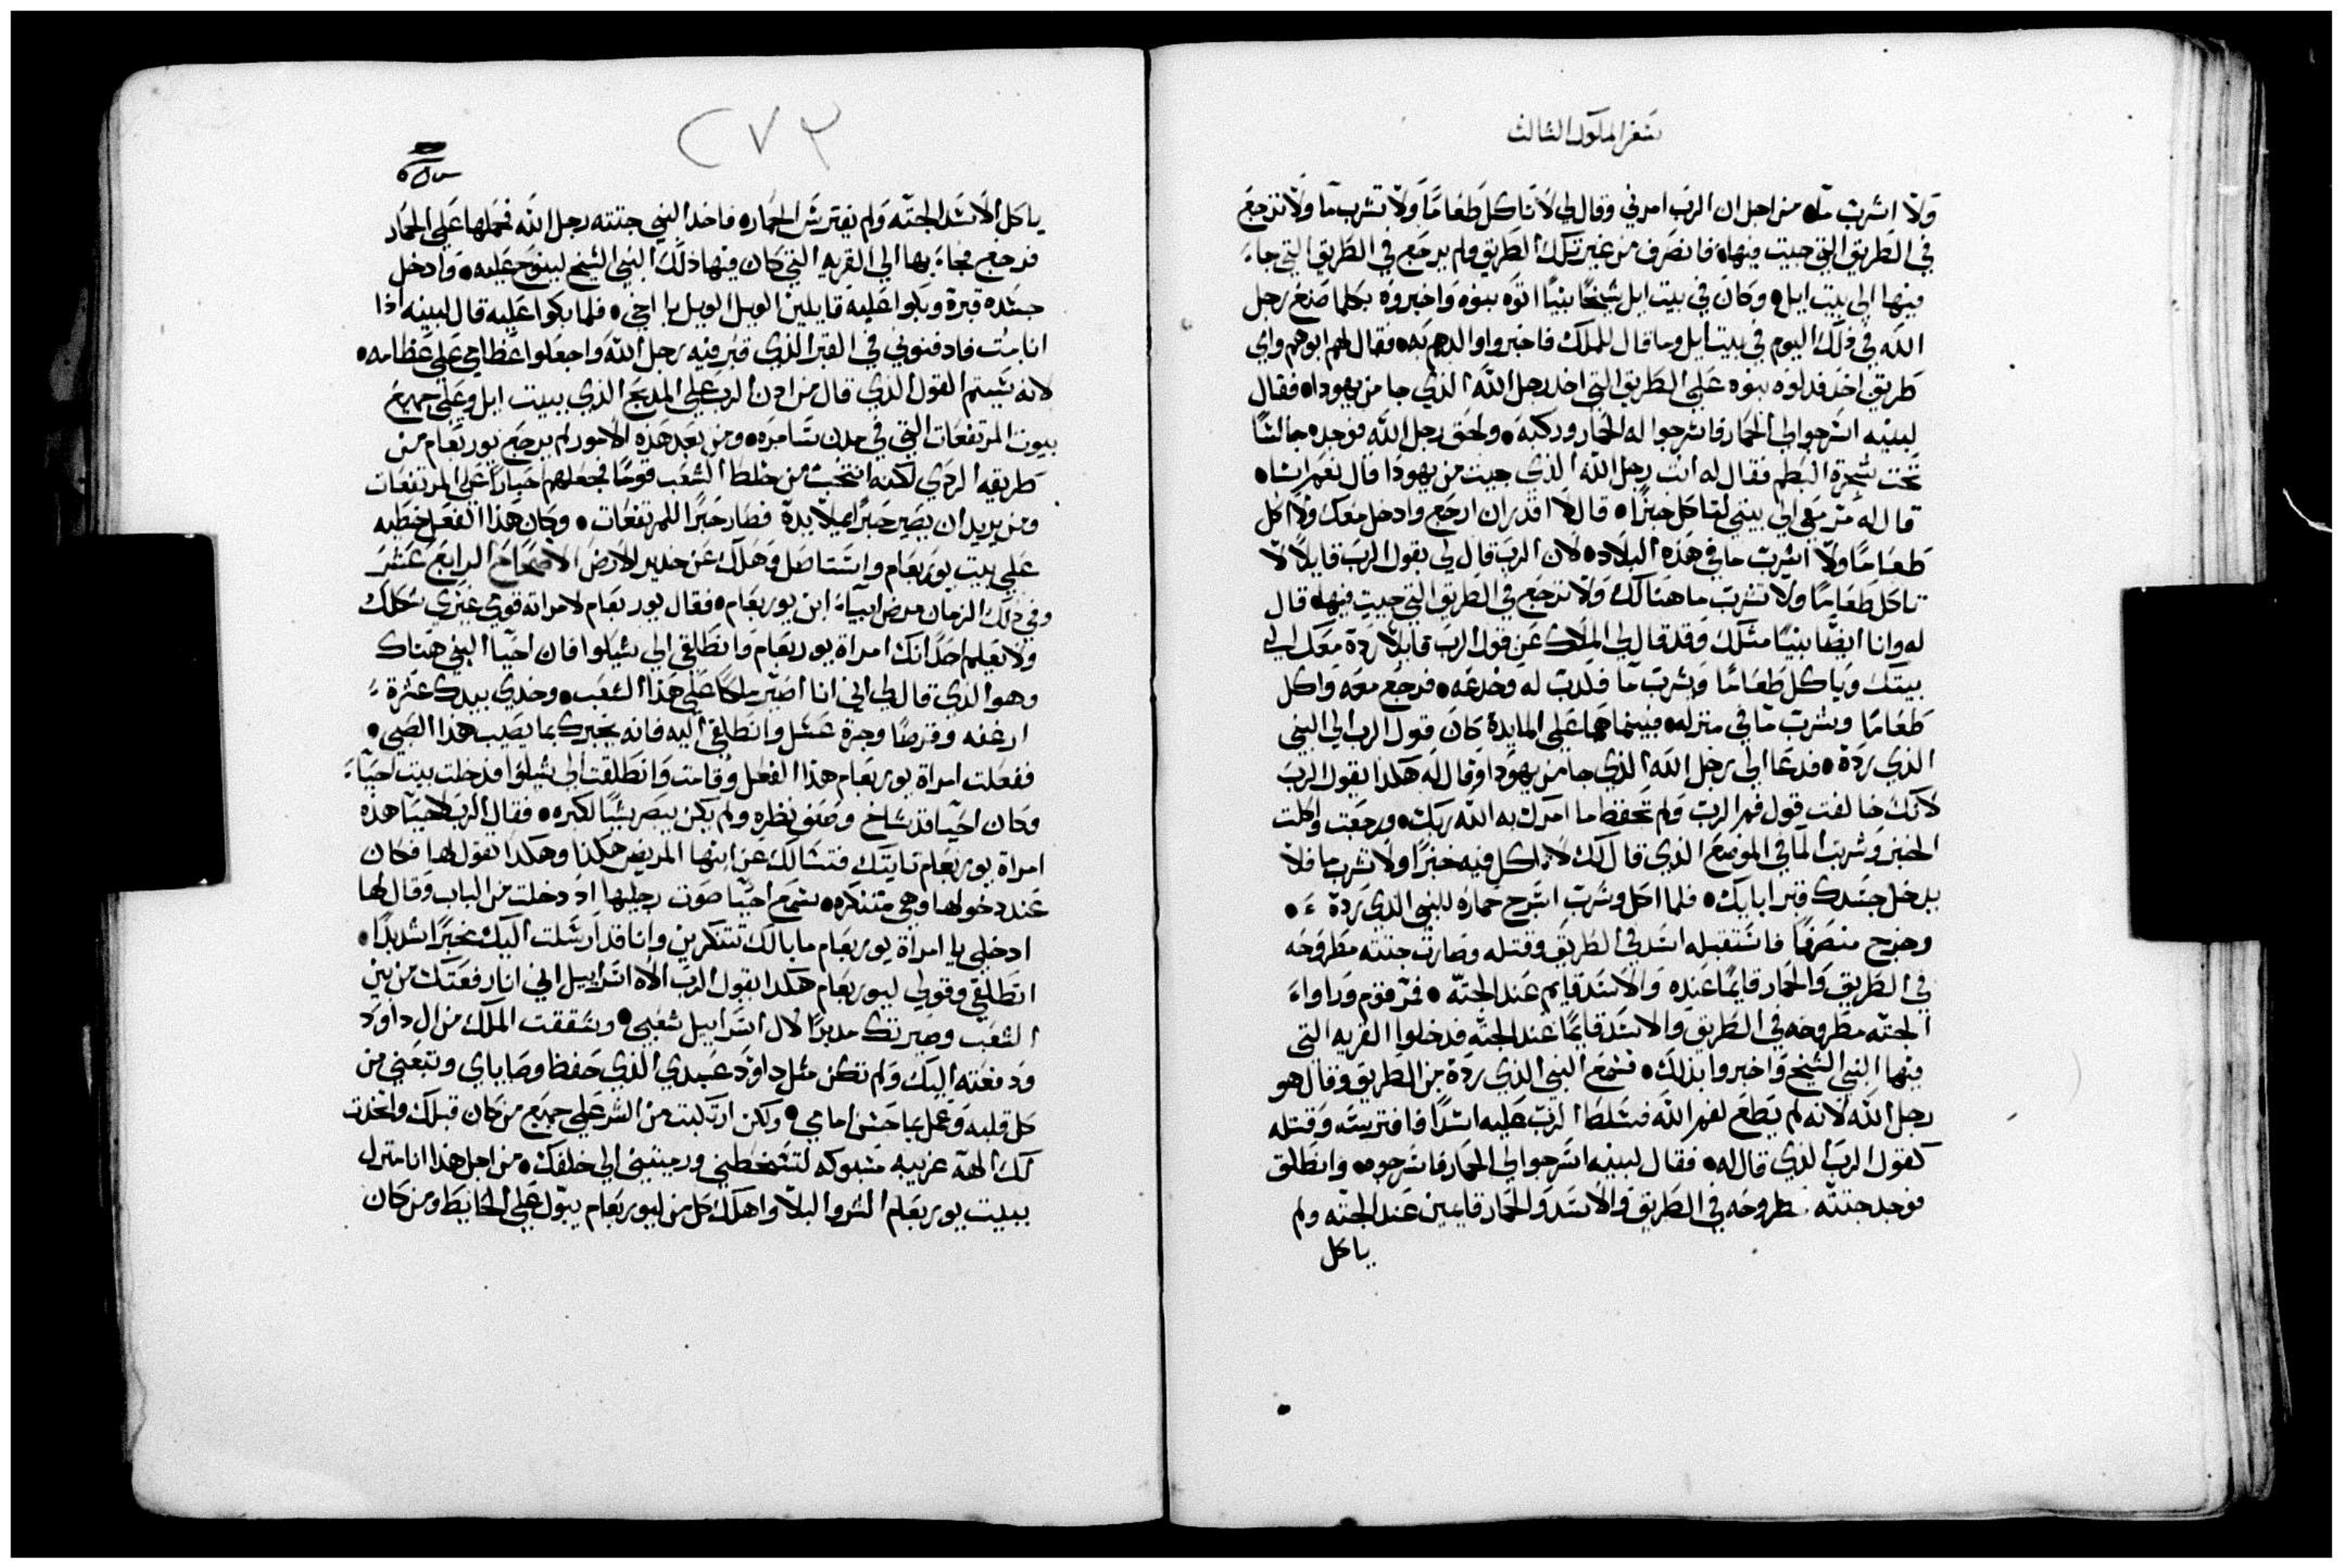 سفر الملوك الثالث
ولا اشرب ماء من اجل ان الرب امرني وقال لي لا تاكل طعاما ولا تشرب ما ولا ترجع
في الطريق التي جيت فيها فانصرف من غير تلك الطريق ولم يرجع في الطريق التي جاء
فيها الي بيت ايل وكان في بيت ايل شيخا نبيا اتوه بنوه واخبروه بكلما صنع رجل
الله في ذلك اليوم في بيت ايل وما قال للملك فاخبروا والدهم به فقال لهم ابوهم واي
طريق اخذ فدلوه بنوه علي الطريق التي اخذ رجل الله الذي جا من يهودا فقال
لبنيه اسرجوا لي الحمار فاسرجوا له الحمار وركبه ولحق رجل الله فوجده جالسا
تحت شجرة البطم فقال له انت رجل الله الذي جيت من يهودا قال نعم انا
قال له سر معي الي بيتي لتاكل خبزا قال لا اقدر ان ارجع وادخل معك ولا اكل
طعاما ولا اشرب ما في هذه البلاد لان الرب قال لي بقول الرب قايلا لا
تاكل طعاما ولا تشرب ما هنالك ولا ترجع في الطريق التي جيت فيها قال
له وانا ايضا نبيا مثلك وقد قال لي الملاك عن قول الرب قايلا رده معك الي
بيتك وياكل طعاما ويشرب ما فكدب له وخدعه فرجع معه واكل
طعاما وشرب ما في منزله فبينما هما علي المايدة كان قول الرب الي النبي
الذي رده فدعا الي رجل الله الذي جا من يهودا وقال له هكذا يقول الرب
لانك خالفت قول فم الرب ولم تحفظ ما امرك به الله ربك ورجعت واكلت
الخبز وشربت الما في الموضع الذي قال لك لا تاكل فيه خبزا ولا تشرب ما فلا
يدخل جسدك قبر ابايك فلما اكل وشرب اسرج حماره للنبي الذي رده
وخرج منصرفا فاستقبله اسد في الطريق وقتله وصارت جثته مطروحه
في الطريق والحمار قايما عنده والاسد قايم عند الجثه فمر قوم وراواء
الجثه مطروحه في الطريق والاسد قايما عند الجثه فدخلوا القريه التي
فيها النبي الشيخ واخبروا بذلك فسمع النبي الذي رده من الطريق وقال هو
رجل الله لانه لم يطع لفم الله فسلط الرب عليه اسدا فافترسه وقتله
كقول الرب الذي قال له فقال لبنيه اسرجوا لي الحمار فاسرجوه وانطلق
فوجد جثته مطروحه في الطريق والاسد والحمار قايمين عند الجثه ولم
ياكل
٢٧٣
ياكل الاسد الجثه ولم يفترس الحماره فاخد النبي جثته رجل الله فحملها علي الحمار
فرجع فجاء بها الي القريه التي كان فيها ذلك النبي الشيخ لينوح عليه وادخل
جسده قبرة وبكوا عليه قايلين الويل الويل يا اخي فلما بكوا عليه قال لبنيه اذا
انا مت فادفنوني في القبر الذي قبر فيه رجل الله واجعلوا عظامي علي عظامه
لانه سيتم القول الذي قال من ادن الرب علي المدبح الذي ببيت ايل وعلي جميع
بيوت المرتفعات التي في مدن سامره ومن بعد هذه الامور لم يرجع يوربعام من
طريقه الردي لكنه انتخب من خلط الشعب قوما فجعلهم احبارا علي المرتفعات
ومن يريد ان يصير حبرا يملا يدة فصار حبرا للمرتفعات وكان هذا الفعل خطيه
علي بيت يوربعام واستاصل وهلك عن جديد الارض الاصحاح الرابع عشر
وفي ذلك الزمان مرض ابياء ابن يوربعام فقال يوربعام لامراته قومي غيري شكلك
ولا يعلم احدا انك امراة يوربعام وانطلقي الي شيلوا فان احيا النبي هناك
وهو الذي قال لي اني انا اصير ملكا علي هذا الشعب وخدي بيدك عشرة
ارغفه وقرصا وجرة عسل وانطلقي اليه فانه يخبرك بما يصيب هذا الصبي
ففعلت امراة يوربعام هذا الفعل وقامت وانطلقت الي شيلوا فدخلت بيت احياء
وكان احيا قد شاخ وضعف نظره ولم يكن يبصر شيا لكبره فقال الرب لاحيا هذه
امراة يوربعام تايتك فتسالك عن ابنها المريض هكذا وهكدا تقول لها فكان
عند دخولها وهي متنكره سمع احيا صوت رجليها اد دخلت من الباب وقال لها
ادخلي يا امراة يوربعام ما بالك تتنكرين وانا قد ارسلت اليك مخبرا شديدا
انطلقي وقولي ليوربعام هكدا يقول الرب الاه اسراييل اني انا رفعتك من بين
الشعب وصيرتك مدبرا لال اسراييل شعبي وشققت الملك من ال داود
ودفعته اليك ولم تكن مثل داود عبدي الذي حفظ وصاياي وتبعني من
كل قلبه وعمل بما حسن امامي ولكن ارتكبت من الشر علي جميع من كان قبلك واتخدت
لك الهة غريبه مسبوكه لتسخطيني ورميتني الي خلفك من اجل هذا انا منزل
ببيت يوربعام الشر والبلا واهلك كل من ليوربعام يبول علي الحايط ومن كان